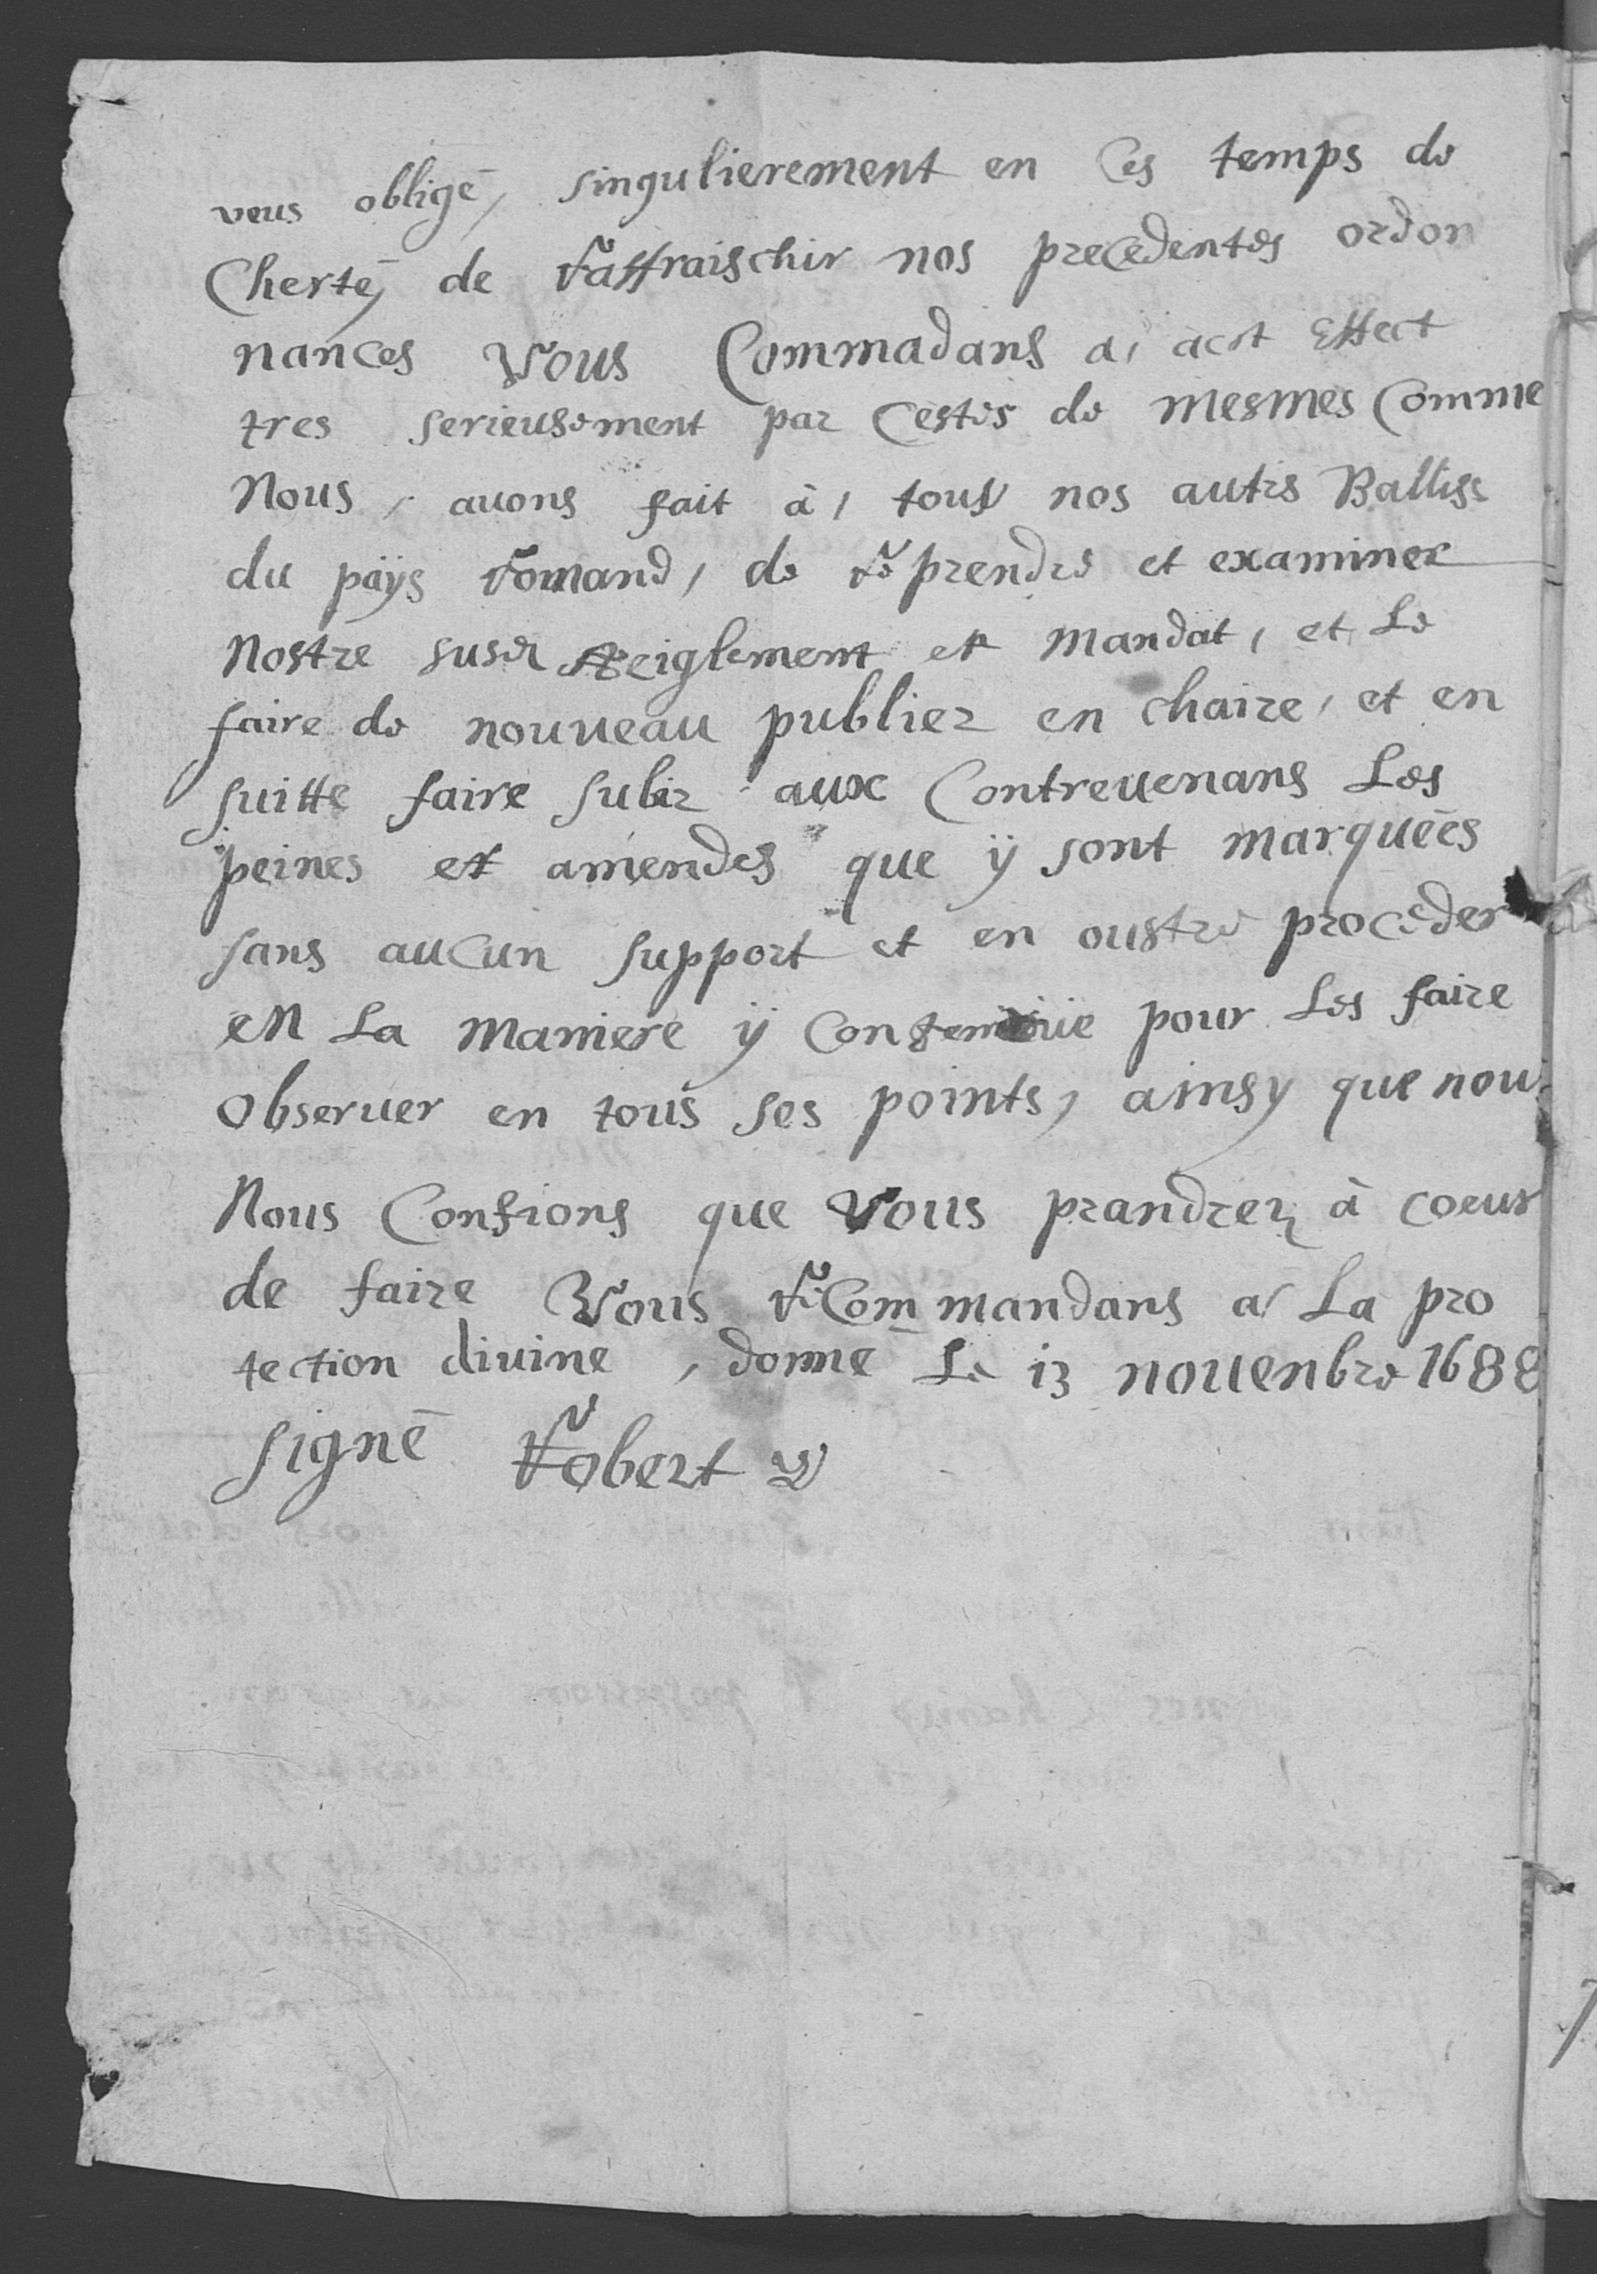 veus obligé, singulierement en Ces temps de
Cherté, de Raffraischir nos preCedentes ordon
nances Vous Commadans a, acet Effect
tres serieusement par Cestes de mesmes Comme
Nous, auons fait à, tous nos autres Ballifs
du päys Romand, de Reprendre et examiner
Nostre susd Reiglement et Mandat, et Le
faire de nouueau publier en chaire, et en
suitte faire subir aux Contreuenans Les
peines et amendes que ÿ sont marquées
sans auCun support et en oustre proceder
en La maniere ÿ Contenüe pour Les faire
Obseruer en tous ses points, ainsy que nous
Nous Confions que Vous prandrez à coeur
de faire Vous ReCommandans a La pro
tection diuine, donné Le 13 nouenbre 1688
signé Robert